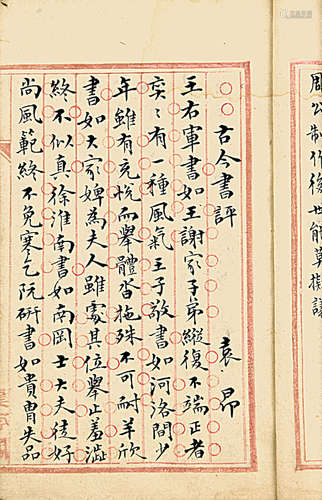 古今書評
袁昂
王右軍書如王謝家子弟縱復不端正者
奕〻有一種風氣王子敬書如河洛間少
年雖有充悅而舉體沓拖殊不可耐羊欣
書如大家婢為夫人雖處其位舉止羞澀
終不似真徐淮南書如南岡士大夫徒好
尚風範終不免寒乞阮研書如貴胄失品
周公制作後世能莫擬議